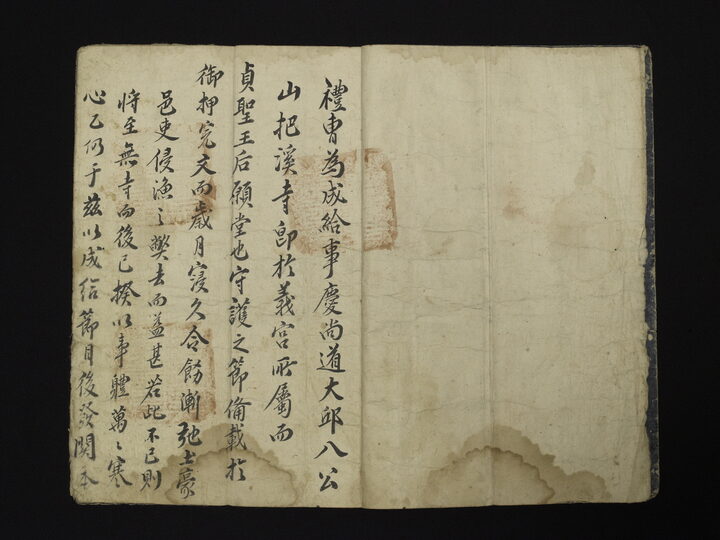 禮曹為成給事慶尚道大邱八公
山把溪寺卽於義宮所屬而
貞聖王后願堂也守護之節俻載於
御押完文而歲月寖久令飭漸弛土豪
邑吏侵漁之弊去而益甚若此不已則
將至無寺而後已揆以事體萬〻寒
心乙仍于玆以成給節目後發関本